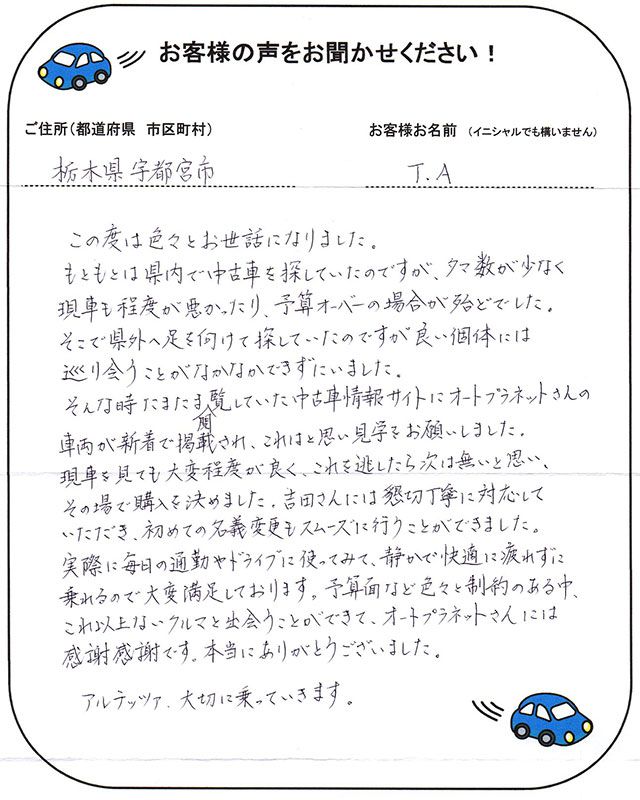 お客様の声をお聞かせください！
ご住所（都道府県　市区町村）
お客様お名前　（イニシャルでも構いません）
栃木県宇都宮市
T.A
この度は色々とお世話になりました。
もともとは県内で中古車を探していたのですが、タマ数が少なく
現車も程度が悪かったり、予算オーバーの場合が殆どでした。
そこで県外へ足を向けて探していたのですが良い個体には
巡り会うことがなかなかできずにいました。
そんな時たまたま閲覧していた中古車情報サイトにオートプラネットさんの
車両が新着で掲載され、これはと思い見学をお願いしました。
現車を見ても大変程度が良く、これを逃したら次は無いと思い、
その場で購入を決めました。吉田さんには懇切丁寧に対応して
いただき、初めての名義変更もスムーズに行うことができました。
実際に毎日の通勤やドライブに使ってみて、静かで快適に疲れずに
乗れるので大変満足しております。予算面など色々と制約のある中、
これ以上ないクルマと出会うことができて、オートプラネットさんには
感謝感謝です。本当にありがとうございました。
アルテッツァ、大切に乗っていきます。